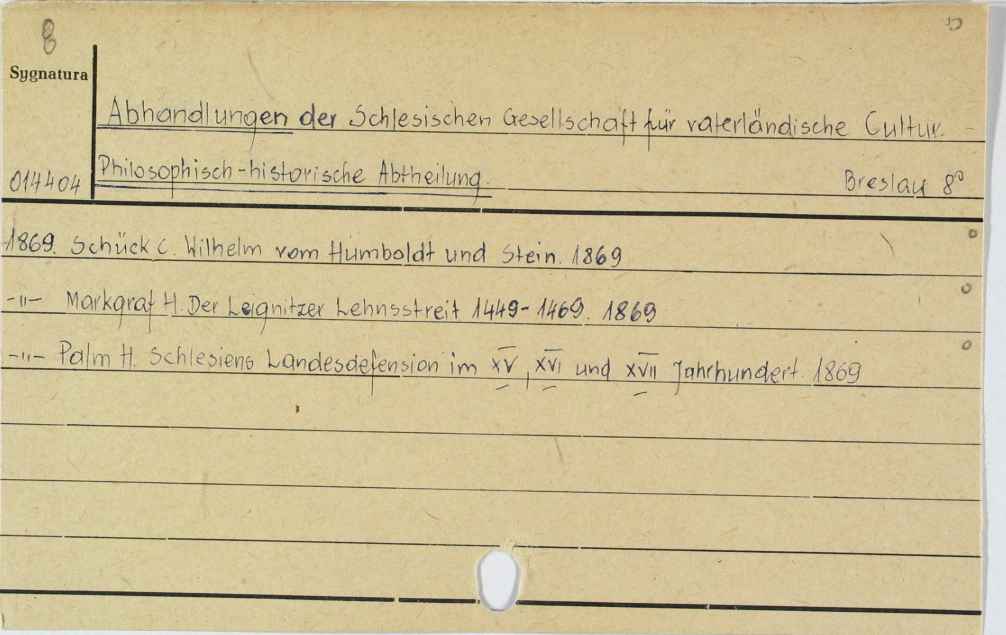 8
Sygnatura
Abhandlungen der Schlesischen Gesellschaft für vaterländische Cultur.
014404 Philosophisch-historische Abtheilung. Breslau 8°
1869. Schück C. Wilhelm vom Humboldt und Stein. 1869
-"- Markgraf H. Der Leignitzer Lehnsstreit 1449-1469. 1869
-"- Palm H. Schlesiens Landesdefension im XV, XVI und XVII Jahrhundert. 1869